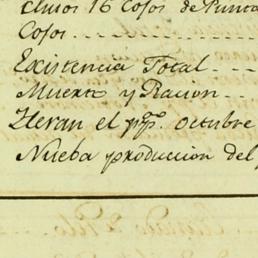 clusos 16 Cojos de Punta
Cojos
Existencia Total
Muerto y Racion
Heran el pp.º octubre
Nueba produccion del